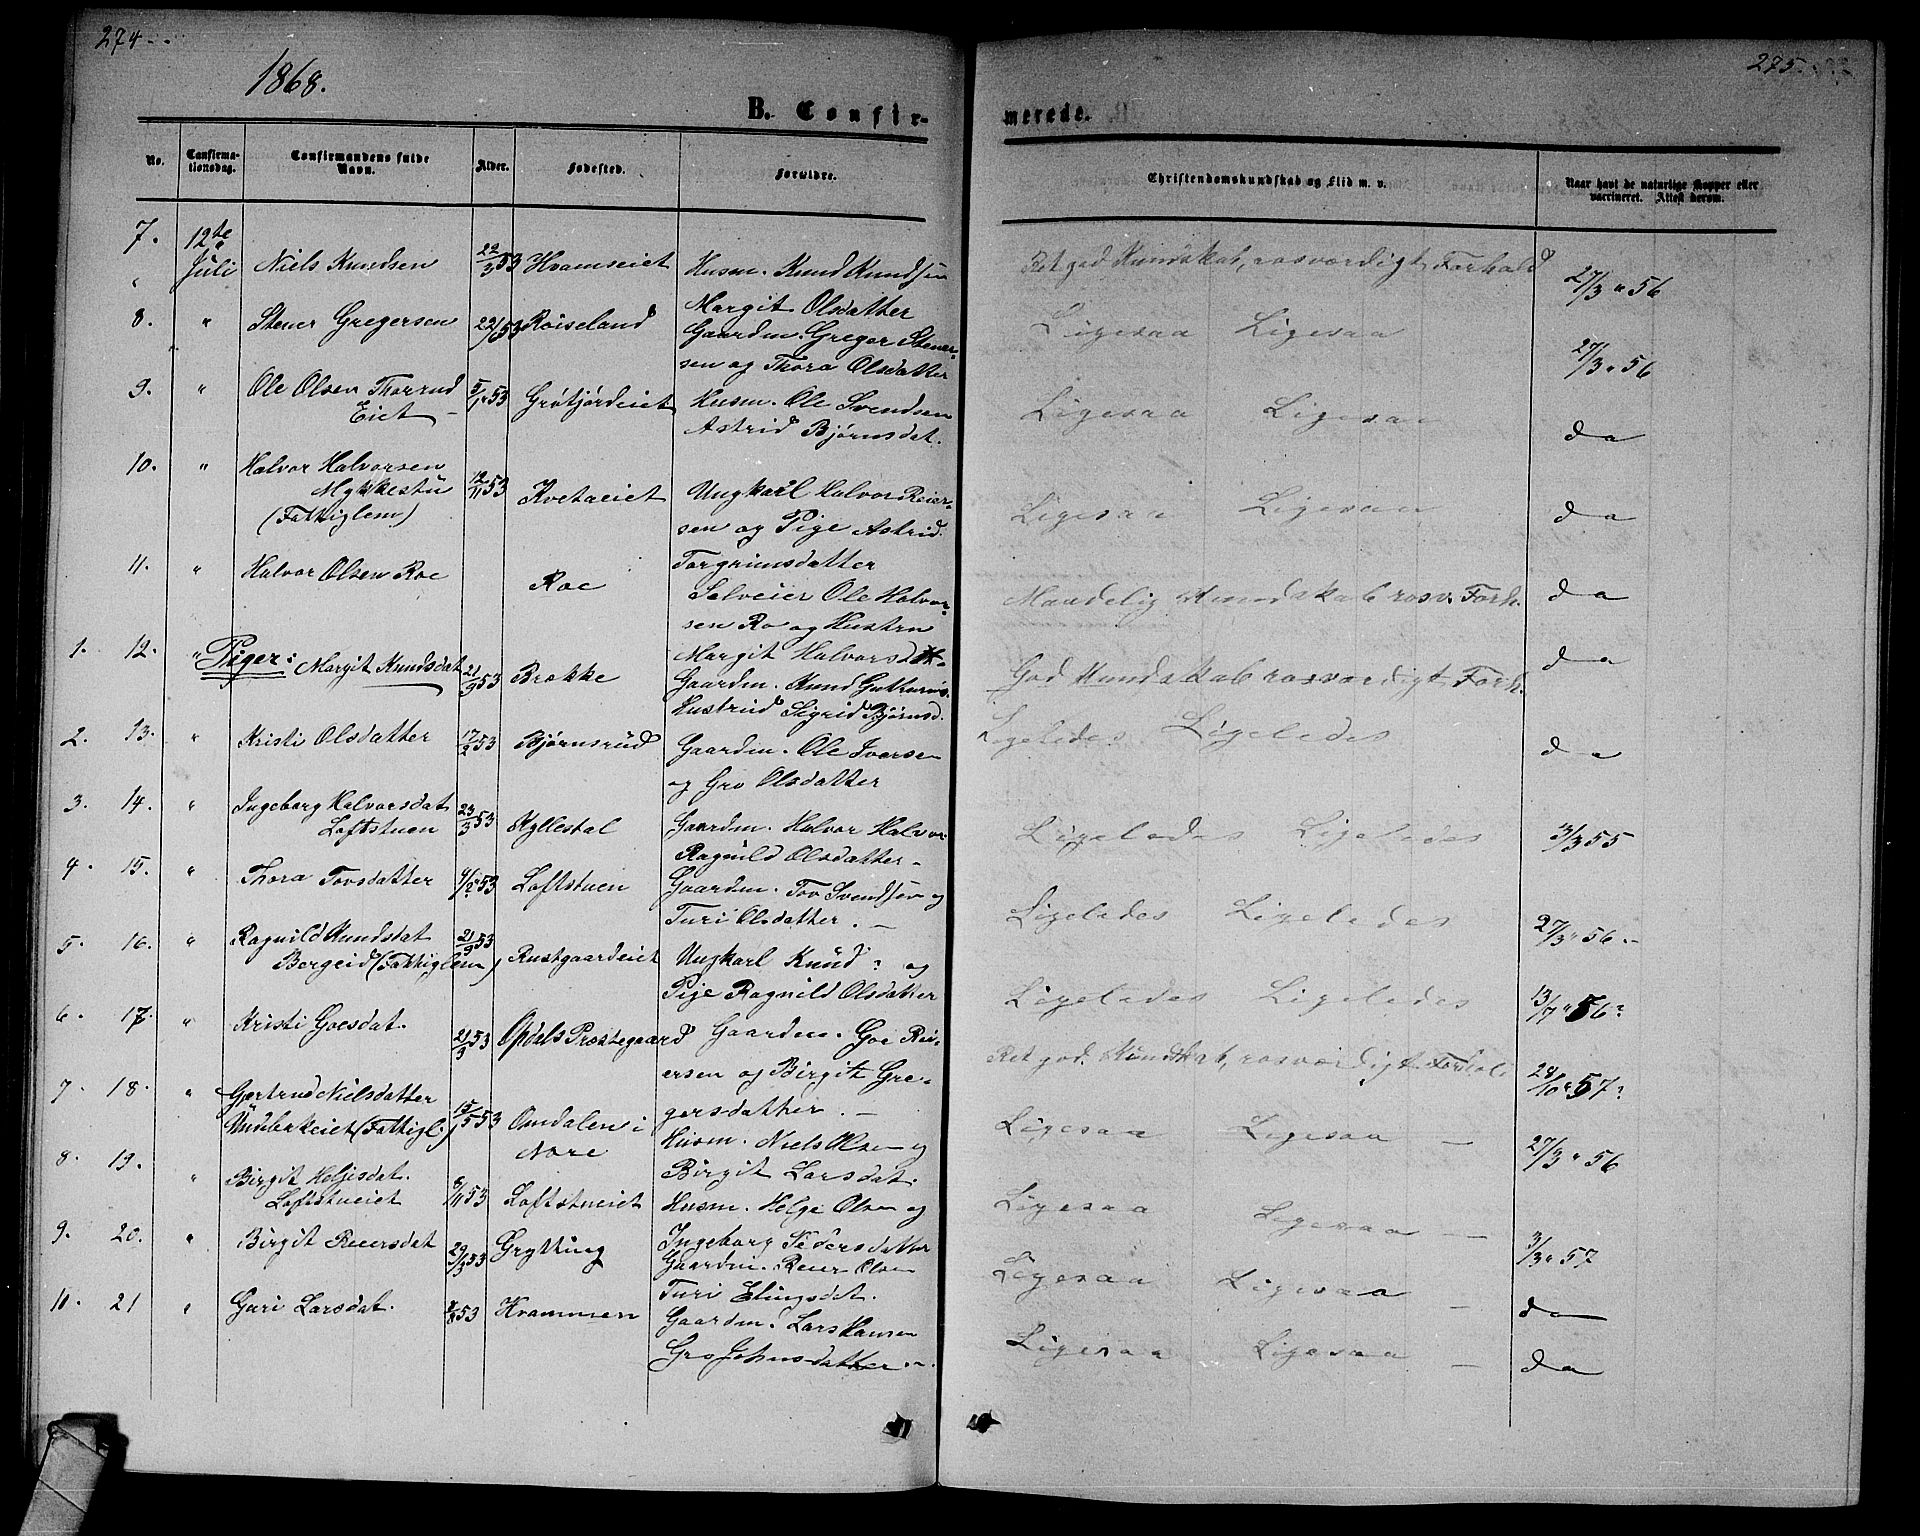 274
1868.
B. Confir-
No. Confirma-tionsdag. Confirmandens fulde Navn. Alder. Fødested. Forældre.
7. 12te Juli Niels Knudsen 22/3 53 Hvamseiet Husm. Knud Knudsen
Margit Olsdatter
8. " Stener Gregersen 53 Roiseland Gaardm. Greger Stener-
sen og Thora Olsdatter
9. " Ole Olsen Thorrud 5/1 53 Grøtjørdeiet Husm. Ole Svendsen
Eiet - Astrid Bjørnsdat.
10. " Halvor Halvorsen
Mykkestu 12/11 53 Kvetaeiet Ungkarl Halvor Reier-
(Fattiglem) sen og Pige Astrid
Torgrimsdatter
11. " Halvor Olsen Roe Roe Selveier Ole Halvor-
sen Ro og Hustru
Margit Halvorsdat-
1. 12. " Piger: Margit Knudsdat 21/9 53 Brække Gaardm. Knud
Hustrud Sigrid Bjørnsd.
2. 13. " Kristi Olsdatter 17/2 53 Bjørnsrud Gaardm. Ole Iversen
og Gro Olsdatter
3. 14. " Ingeborg Halvorsdat 23/3 53 Kyllestal Gaardm. Halvor Halvor
Loftstuen Ragnild Olsdatter -
4 15. " Thora Tovsdatter 53 Loftstuen Gaardm. Tov Svendsen og
Turi Olsdatter. -
5. 16. " Ragnild Knudsdat 21/9 53 Rustgaardeiet Ungkarl Knud ? og
Bergeid (Fattiglem) Pige Ragnild Olsdatter
6. 17. " Kristi Goesdat. 21/3 53 Opdals Præstegaard Gaardm. Goe Rei-
ersen og Birgith Gre-
gersdatter. -
7. 18. " Gertrud Nielsdatter 15/5 53 Omdalen i Nore Husm. Niels Olsen og
(Fattigl.) Birgit Larsdat.
8. 19. " Birgit Heljesdat. 8/11 53 Loftstueiet Husm. Helge Olsen og
Loftstueiet Ingeborg Pedersdatter
9. 20. " Birgit Reiersdat 29/3 53 Grytting Gaardm. Reier Olsen
Turi Elingsdat.
10. 21 " Guri Larsdat. 53 Hvammen Gaardm. Lars Hansen
Gro Johnsdatter
275.
merede.
Christendomskundskab og Flid m. v. Naar havt de naturlige Kopper eller vaccineret. Attest derom.
Ret god Kundskab, rosværdigt Forhold 27/3 " 56
Ligesaa Ligesaa 27/3 " 56
Ligesaa Ligesaa da
Ligesaa Ligesaa da
Maadelig Kundskab rosv. Forh. da
God Kundskab rosværdigt Forh. da
Ligeledes Ligeledes da
Ligeledes Ligeledes 3/3 55
Ligeledes Ligeledes 27/3 " 56 -
Ligeledes Ligeledes 13/7 " 56 ?
Ret god Kundskab, rosværdigt Forhold 28/10 57 ?
Ligesaa Ligesaa - 27/3 " 56
Ligesaa Ligesaa - 3/3 " 57
Ligesaa Ligesaa - da
Ligesaa Ligesaa - da